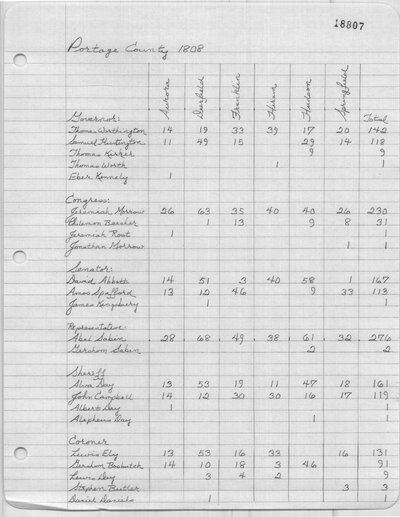 18807
Portage County 1808
Aurora Deerfield Franklin Hiram Hudson Springfield Total
Governor:
Thomas Worthington 14 19 33 39 17 20 142
Samuel Huntington 11 49 15 29 14 118
Thomas Kirker 9 9
Thomas Worth 1 1
Eber Kennely 1
Congress:
Jeremiah Morrow 26 63 35 40 40 26 230
Philemon Beecher 1 13 9 8 31
Jeremiah Root 1 1
Jonathan Morrow 1 1
Senator:
David Abbott 14 51 3 40 58 1 167
Amos Spafford 13 12 46 9 33 113
James Kingsbury 1 1
Representative:
Abel Sabin 28 68 49 38 61 32 276
Gershom Sabin 2 2
Sheriff
Alva Day 13 53 19 11 47 18 161
John Campbell 14 12 30 30 16 17 119
Albert Day 1 1
Alapheus Day 1 1
Coroner
Lewis Ely 13 53 16 33 16 131
Gershom 14 10 18 3 46 91
Lewis Day 3 4 2 9
Stephen Butler 3 3
Daniel Daniels 1 1